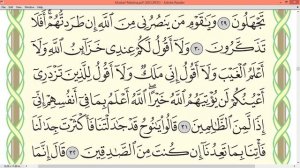 تَجْهَلُونَ ٢٩ وَيَٰقَوْمِ مَن يَنصُرُنِى مِنَ ٱللَّهِ إِن طَرَدتُّهُمْ أَفَلَا
تَذَكَّرُونَ ٣٠ وَلَآ أَقُولُ لَكُمْ عِندِى خَزَآئِنُ ٱللَّهِ وَلَآ
أَعْلَمُ ٱلْغَيْبَ وَلَآ أَقُولُ إِنِّى مَلَكٌ وَلَآ أَقُولُ لِلَّذِينَ تَزْدَرِىٓ
أَعْيُنُكُمْ لَن يُؤْتِيَهُمُ ٱللَّهُ خَيْرًا ۖ ٱللَّهُ أَعْلَمُ بِمَا فِىٓ أَنفُسِهِمْ ۖ إِنِّىٓ
إِذًا لَّمِنَ ٱلظَّٰلِمِينَ ٣١ قَالُوا۟ يَٰنُوحُ قَدْ جَٰدَلْتَنَا فَأَكْثَرْتَ جِدَٰلَنَا
فَأْتِنَا بِمَا تَعِدُنَآ إِن كُنتَ مِنَ ٱلصَّٰدِقِينَ ٣٢ قَالَ